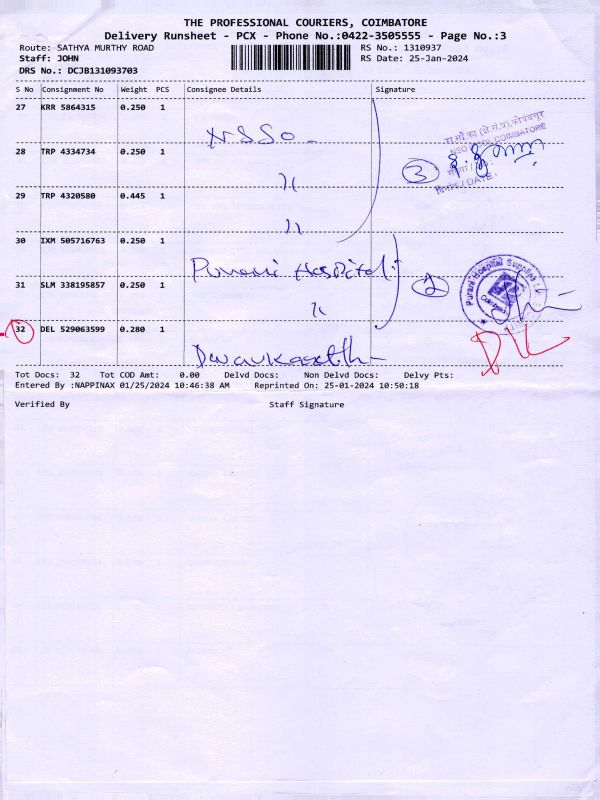 THE PROFESSIONAL COURIERS, COIMBATORE
Delivery Runsheet - PCX - Phone No.:0422-3505555 - Page No.:3
Route: SATHYA MURTHY ROAD RS No.: 1310937
Staff: JOHN RS Date: 25-Jan-2024
DRS No.: DCJB131093703
S No Consignment No Weight PCS Consignee Details Signature
27 KRR 5864315 0.250 1 NSSO
28 TRP 4334734 0.250 1 〃 3
29 TRP 4320580 0.445 1 〃
30 IXM 505716763 0.250 1 Purani Hospital
31 SLM 338195857 0.250 1 〃 2
32 DEL 529063599 0.280 1
COIMBATORE
DATE:
Purani Hospital Supplies
Tot Docs: 32 Tot COD Amt: 0.00 Delvd Docs: Non Delvd Docs: Delvy Pts:
Entered By :NAPPINAX 01/25/2024 10:46:38 AM Reprinted On: 25-01-2024 10:50:18
Verified By Staff Signature